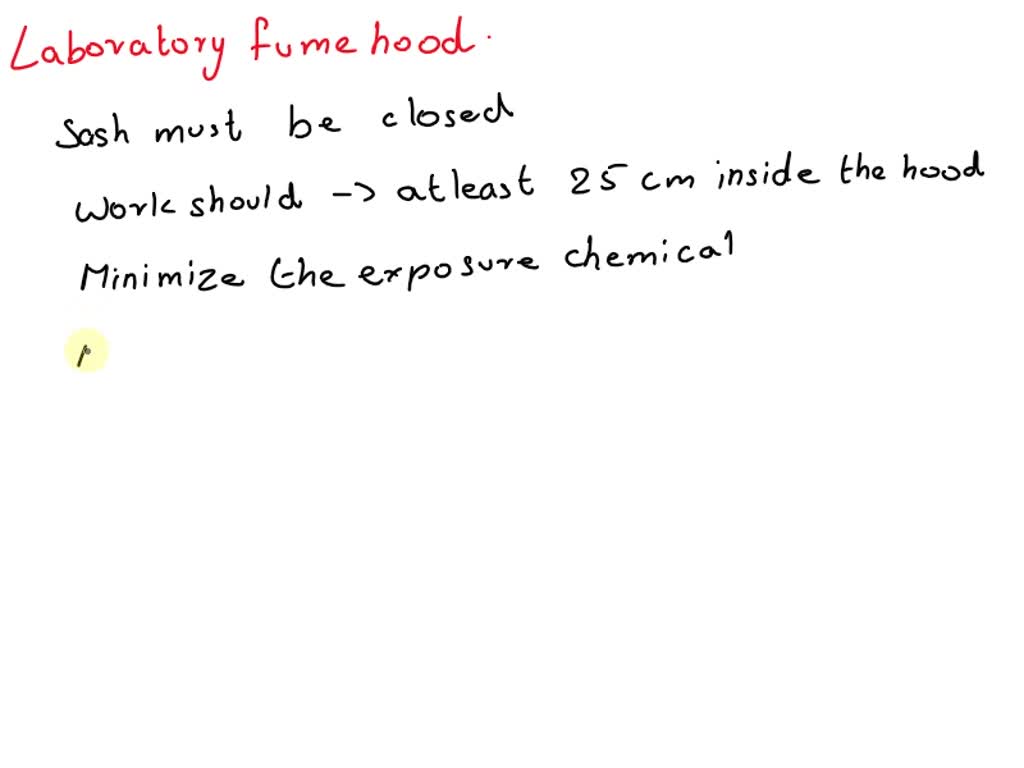 Laboratory fume hood.
Sash must be closed
Work should -> atleast 25 cm inside the hood
Minimize the exposure chemical